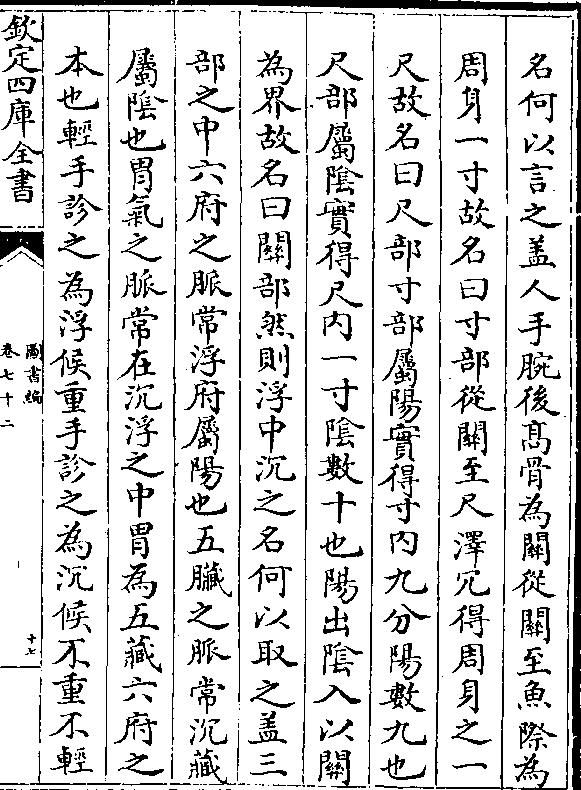 名何以言之盖人手腕後髙骨為關從關至魚際為
周身一寸故名曰寸部從關至尺澤穴得周身之一
尺故名曰尺部寸部屬陽實得寸内九分陽數九也
尺部屬陰實得尺内一寸陰數十也陽出陰入以關
為界故名曰關部然則浮中沉之名何以取之盖三
部之中六府之脈常浮府屬陽也五臟之脈常沉藏
屬陰也胃氣之脈常在沉浮之中胃為五藏六府之
本也輕手診之為浮候重手診之為沉候不重不輕
欽定四庫全書
圖書編
卷七十二
十七